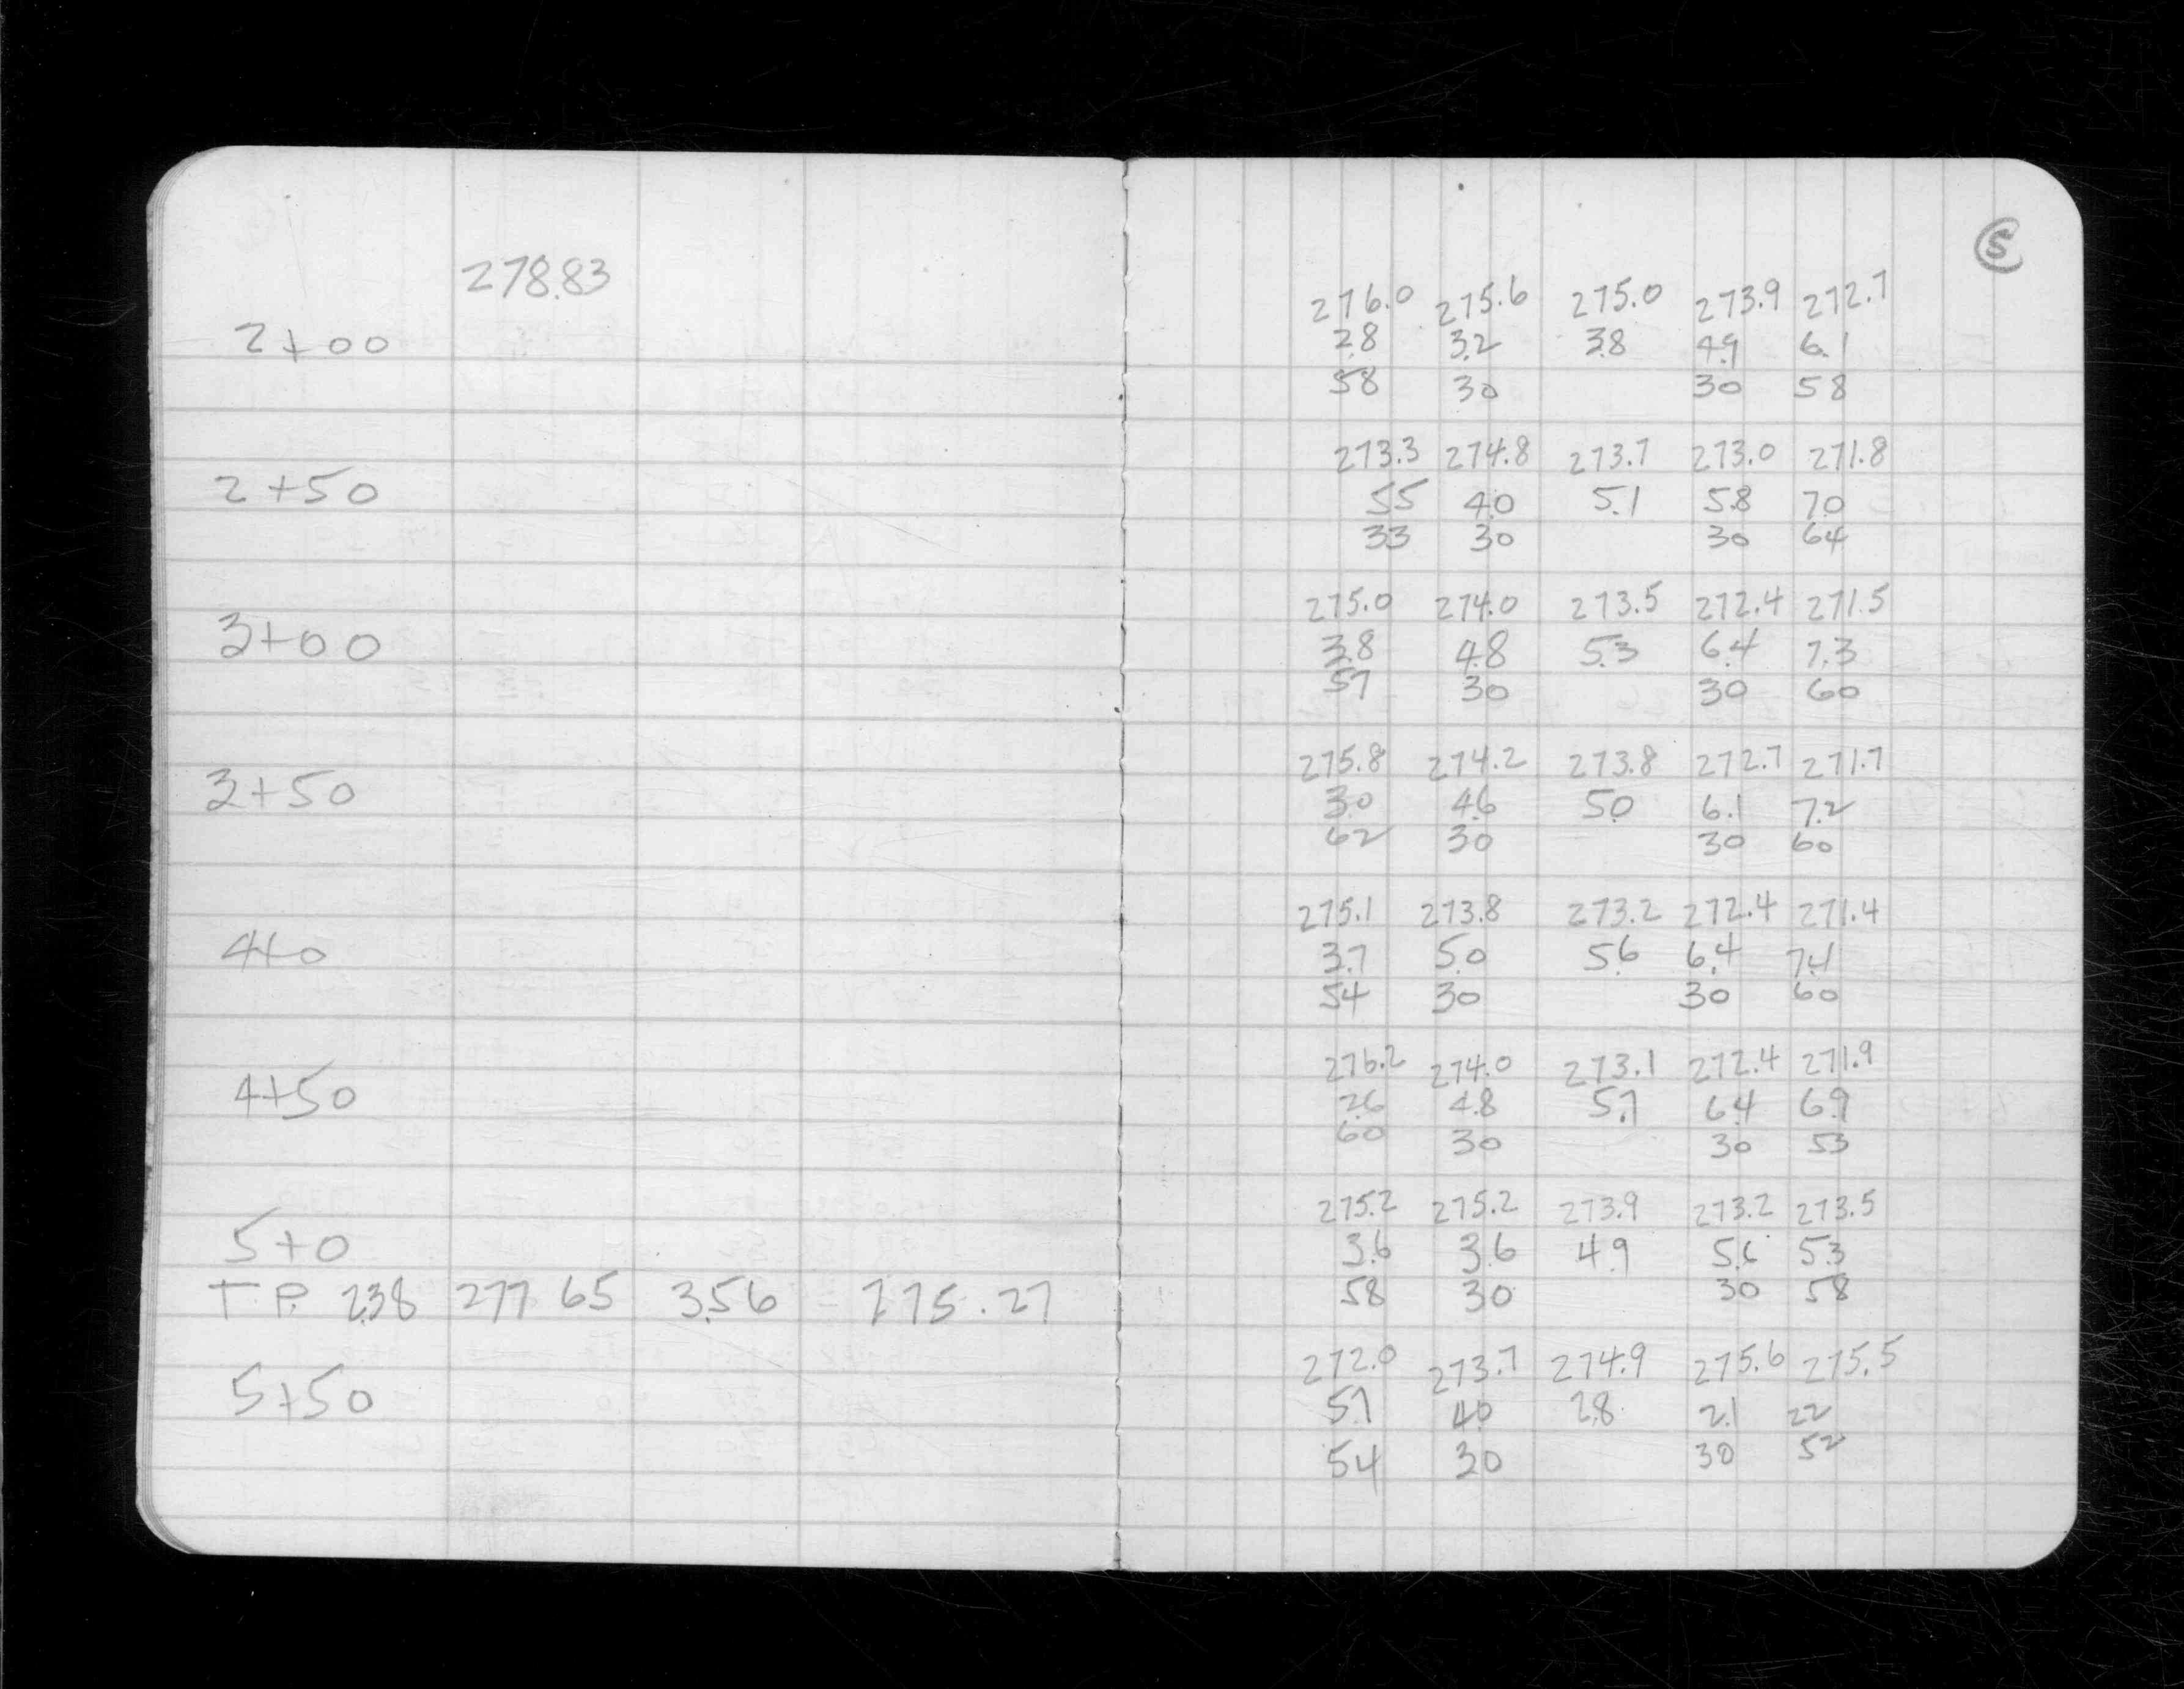 5
278.83
276.0 275.6 275.0 273.9 272.7
2+00 2.8 3.2 3.8 4.9 6.1
58 30 30 58
273.3 274.8 273.7 273.0 271.8
2+50 5.5 4.0 5.1 5.8 7.0
33 30 30 64
275.0 274.0 273.5 272.4 271.5
3+00 3.8 4.8 5.3 6.4 7.3
57 30 30 60
275.8 274.2 273.8 272.7 271.7
3+50 3.0 4.6 5.0 6.1 7.2
62 30 30 60
275.1 273.8 273.2 272.4 271.4
4+0 3.7 5.0 5.6 6.4 7.4
54 30 30 60
276.2 274.0 273.1 272.4 271.9
4+50 2.6 4.8 5.7 6.4 6.9
60 30 30 53
275.2 275.2 273.9 273.2 273.5
5+0 3.6 3.6 4.9 5.6 5.3
T.P. 2.38 277 65 3.56 275.27 58 30 30 58
272.0 273.7 274.9 275.6 275.5
5+50 5.7 4.0 2.8 2.1 22
54 30 30 52